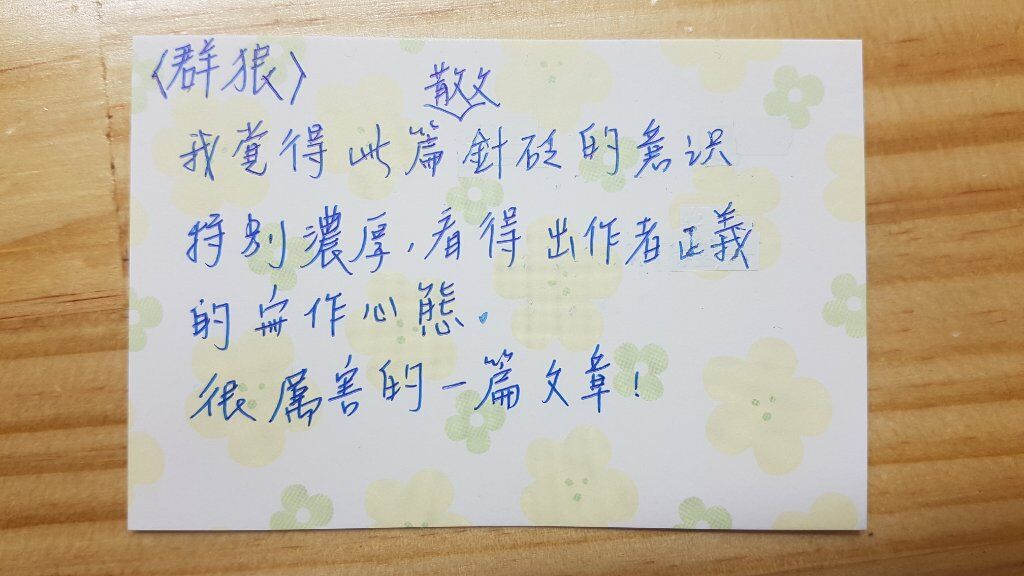 〈群狼〉
散文
我覚得此篇針砭的意识
特别濃厚,看得出作者正義
的寫作心態。
很厲害的一篇文章!